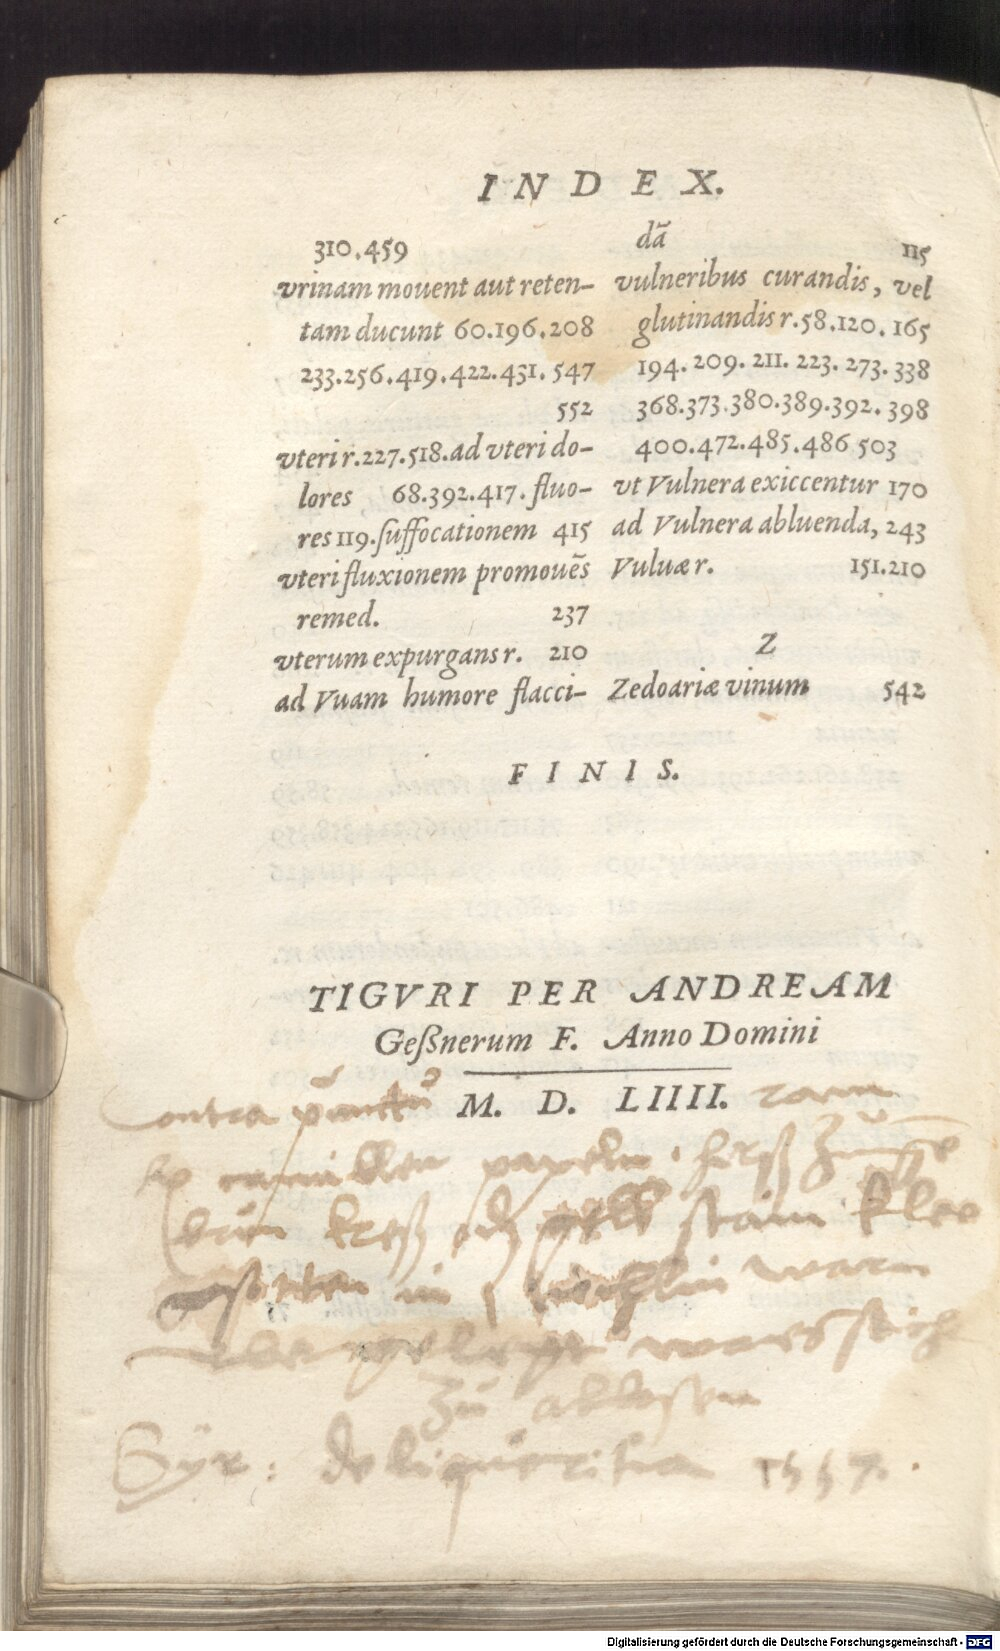 INDEX.
310.459
vrinam mouent aut reten-
tam ducunt 60.196.208
233.256.419.422.431.547
552
vteri r.227.518.ad vteri do-
lores 68.392.417.fluo-
res 119.suffocationem 415
vteri fluxionem promouẽs
remed. 237
vterum expurgans r. 210
ad Vuam humore flacci-
dã 115
vulneribus curandis, vel
glutinandis r.58.120.165
194.209.211.223.273.338
368.373.380.389.392.398
400.472.485.486 503
vt Vulnera exiccentur 170
ad Vulnera abluenda, 243
Vuluæ r. 151.210
Z
Zedoariæ vinum 542
FINIS.
TIGVRI PER ANDREAM
Geßnerum F. Anno Domini
M. D. LIIII.
Contra
camillen
kreß klee
in warm
zu
Syr: de liquiritia 1557.
Digitalisierung gefördert durch die Deutsche Forschungsgemeinschaft - DFG